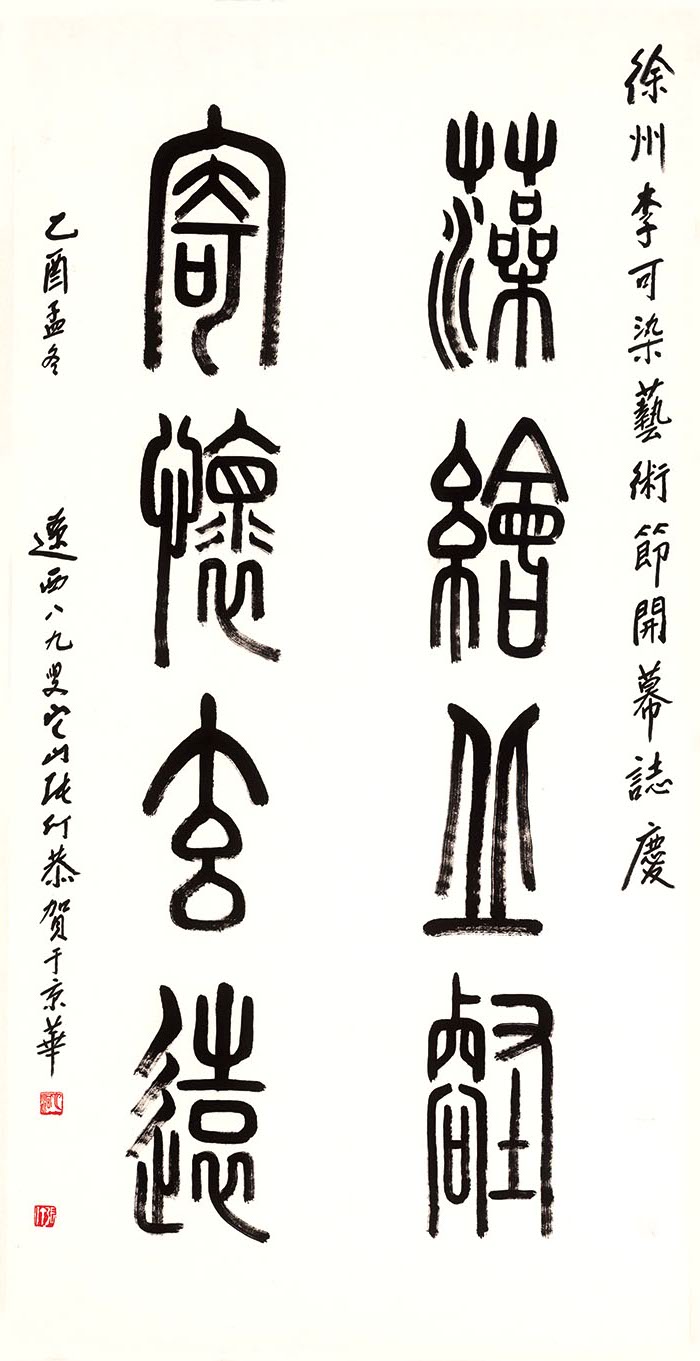 徐州李可染藝術節開幕誌慶
藻繪丘壑
寄懷玄遠
乙酉孟冬 遼西八九叟它山張仃恭賀于京華